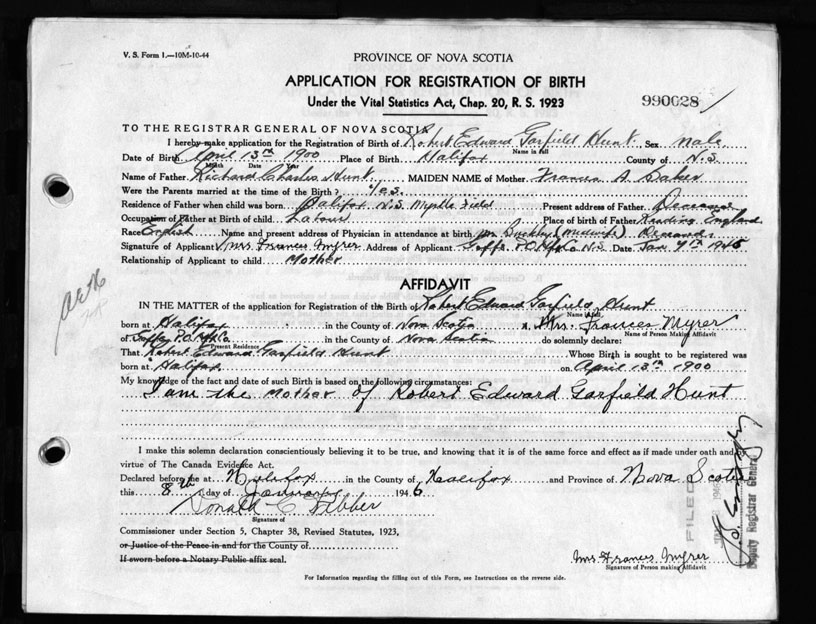 V. S. Form 1.—10M-10-44
PROVINCE OF NOVA SCOTIA
APPLICATION FOR REGISTRATION OF BIRTH
Under the Vital Statistics Act, Chap. 20, R. S. 1923
990028 /
TO THE REGISTRAR GENERAL OF NOVA SCOTIA
I hereby make application for the Registration of Birth of Robert Edward Garfield Hunt. Sex Male
Name in full
Date of Birth April 13th 1900 Place of Birth Halifax County of N.S.
Month Date Year
Name of Father Richard Charles Hunt MAIDEN NAME of Mother Frances A Baker
Were the Parents married at the time of the Birth? Yes.
Residence of Father when child was born Halifax N.S. Myrtle Field Present address of Father Deceased
Occupation of Father at Birth of child Labour Place of birth of Father Reading England
Race English Name and present address of Physician in attendance at birth Buckley (Midwife) Deceased
Signature of Applicant Mrs Frances Myrer Address of Applicant P.O. Hfx Co N.S. Date Jan 7th 1946
Relationship of Applicant to child Mother
AFFIDAVIT
IN THE MATTER of the application for Registration of the Birth of Robert Edward Garfield Hunt
Name in full
born at Halifax in the County of Nova Scotia I, Mrs. Frances Myrer
Name of Person Making Affidavit
of P.O. Hfx Co in the County of Nova Scotia do solemnly declare:
Present Residence
That Robert Edward Garfield Hunt Whose Birth is sought to be registered was
born at Halifax on April 13th 1900
My knowledge of the fact and date of such Birth is based on the following circumstances:
I am the mother of Robert Edward Garfield Hunt
I make this solemn declaration conscientiously believing it to be true, and knowing that it is of the same force and effect as if made under oath and by
virtue of The Canada Evidence Act.
Declared before me at Halifax in the County of Halifax and Province of Nova Scotia
this 8th day of January 1946
Donald C
Signature of
Commissioner under Section 5, Chapter 38, Revised Statutes, 1923,
or Justice of the Peace in and for the County of
If sworn before a Notary Public affix seal.
Mrs Frances Myrer
Signature of Person making Affidavit
For Information regarding the filling out of this Form, see Instructions on the reverse side.
FILED
Deputy Registrar General